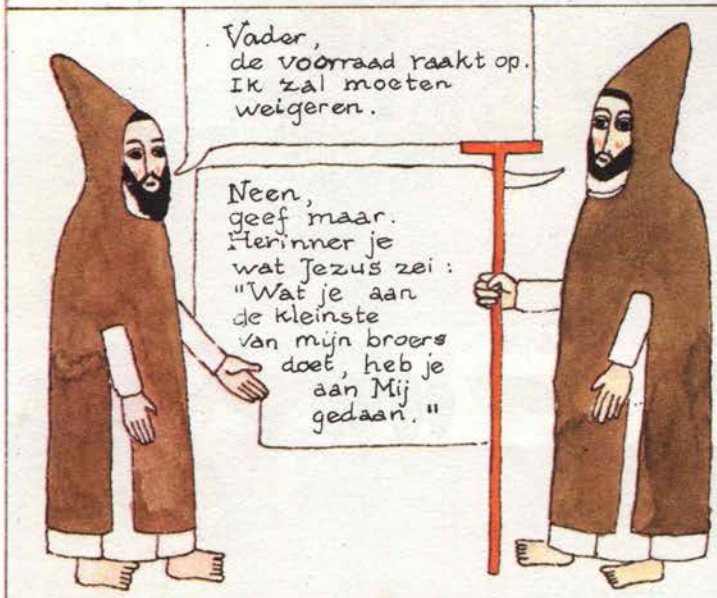 Vader,
de voorraad raakt op.
Ik zal moeten
weigeren.
Neen,
geef maar.
Herinner je
wat Jezus zei :
"Wat je aan
de kleinste
van mijn broers
doet, heb je
aan Mij
gedaan."